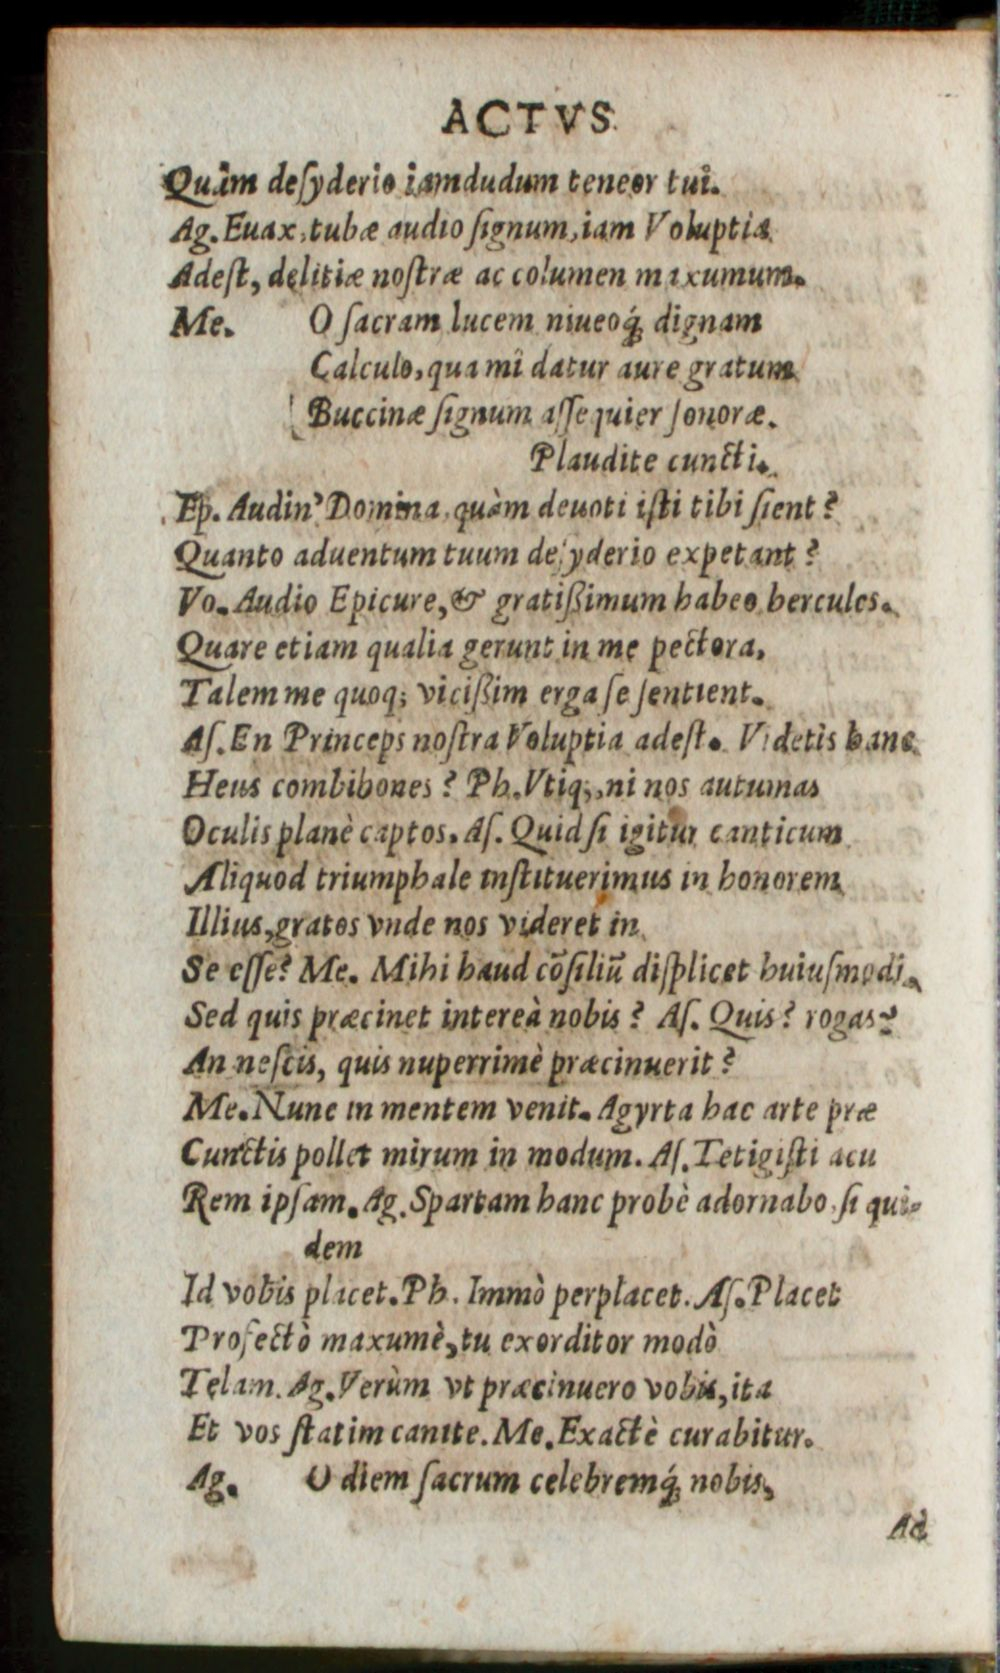 ACTVS.
Quàm deſyderio iamdudum teneor tui.
Ag. Euax, tubæ audio ſignum, iam Voluptia
Adeſt, delitiæ noſtræ ac columen maxumum.
Me. O ſacram lucem niueoq́; dignam
Calculo, qua mî datur aure gratum
Buccinæ ſignum aſſequier ſonoræ.
Plaudite cuncti.
Ep. Audin' Domina, quàm deuoti iſti tibi ſient?
Quanto aduentum tuum deſyderio expetant?
Vo. Audio Epicure, & gratißimum habeo hercules.
Quare etiam qualia gerunt in me pectora,
Talem me quoq; vicißim erga ſe ſentient.
Aſ. En Princeps noſtra Voluptia adeſt. Videtis hanc
Heus combibones? Ph. Vtiq;, ni nos autumas
Oculis planè captos. Aſ. Quid ſi igitur canticum
Aliquod triumphale inſtituerimus in honorem
Illius, gratos vnde nos videret in
Se eſſe? Me. Mihi haud cõſiliũ diſplicet huiuſmodi.
Sed quis præcinet intereà nobis? Aſ. Quis? rogas?
An neſcis, quis nuperrimè præcinuerit?
Me. Nunc in mentem venit. Agyrta hac arte præ
Cunctis pollet mirum in modum. Aſ. Tetigiſti acu
Rem ipſam. Ag. Spartam hanc probè adornabo, ſi qui-
dem
Id vobis placet. Ph. Immò perplacet. Aſ. Placet
Profectò maxumè, tu exorditor modò
Telam. Ag. Verùm vt præcinuero vobis, ita
Et vos ſtatim canite. Me. Exactè curabitur.
Ag. O diem ſacrum celebremq́; nobis,
Ad